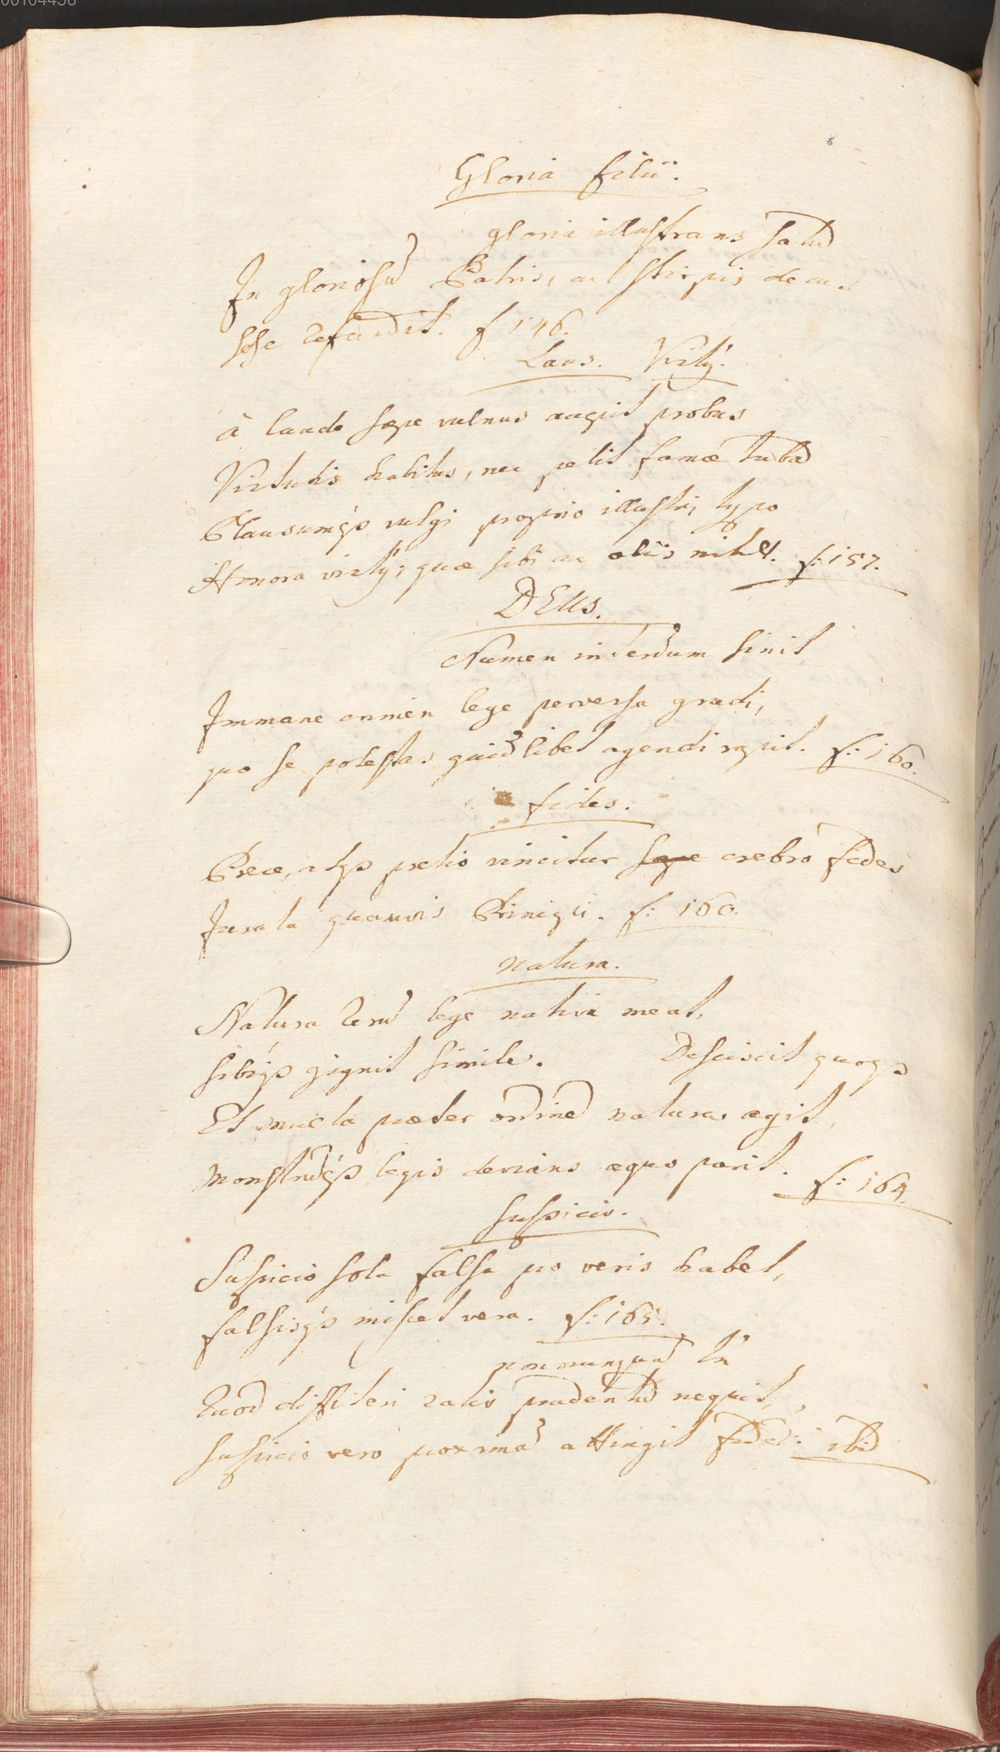 00104436
Gloria filii.
gloria illustrans satū
In gloriosū Patris, ac stirpis decus
sese refudit. f 146.
Laus. Virtỹ.
à laude sæpe vulnus accipit probus
Virtutis habitus, nec petit famæ tubā
Plausumq́ vulgi proprio illustri, typo
Honora virtỹ; quæ sibi ac aliis nitet. f: 157.
DEUS.
Numen interdum sinit
Immane crimen lege perversa gredi,
quo se potestas quidlibet agendi rapit. f: 160.
fides.
Prece, atq pretio vincitur crebro fides
Jurata quamvis Principi. f: 160.
natura.
Natura rerū lege nativa meat,
sibiq́ gignit simile. Desciscit quoq
Et multa præter ordinē naturæ agit,
Monstrūq́ legis devians æquo parit. f: 164.
suspicio.
Suspicio sola falsa pro veris habet,
falsisq́ miscet vera. f: 165.
nonnunquā tn̄
Quod diffiteri ratio prudentū nequit,
suspicio vero proximā attingit fidē: ibid